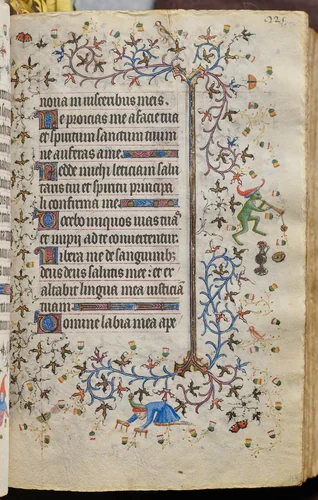 noua in uisceribus meis.
Ne proicias me a facie tua
et spiritum sanctum tuum
ne auferas a me.
Redde michi leticiam salu
taris tui et spiritu principa
li confirma me.
Docebo iniquos uias tuas
et impii ad te conuertentur.
Libera me de sanguinibus
deus deus salutis mee: et ex
altabit lingua mea iusticia
tuam.
Domine labia mea ape